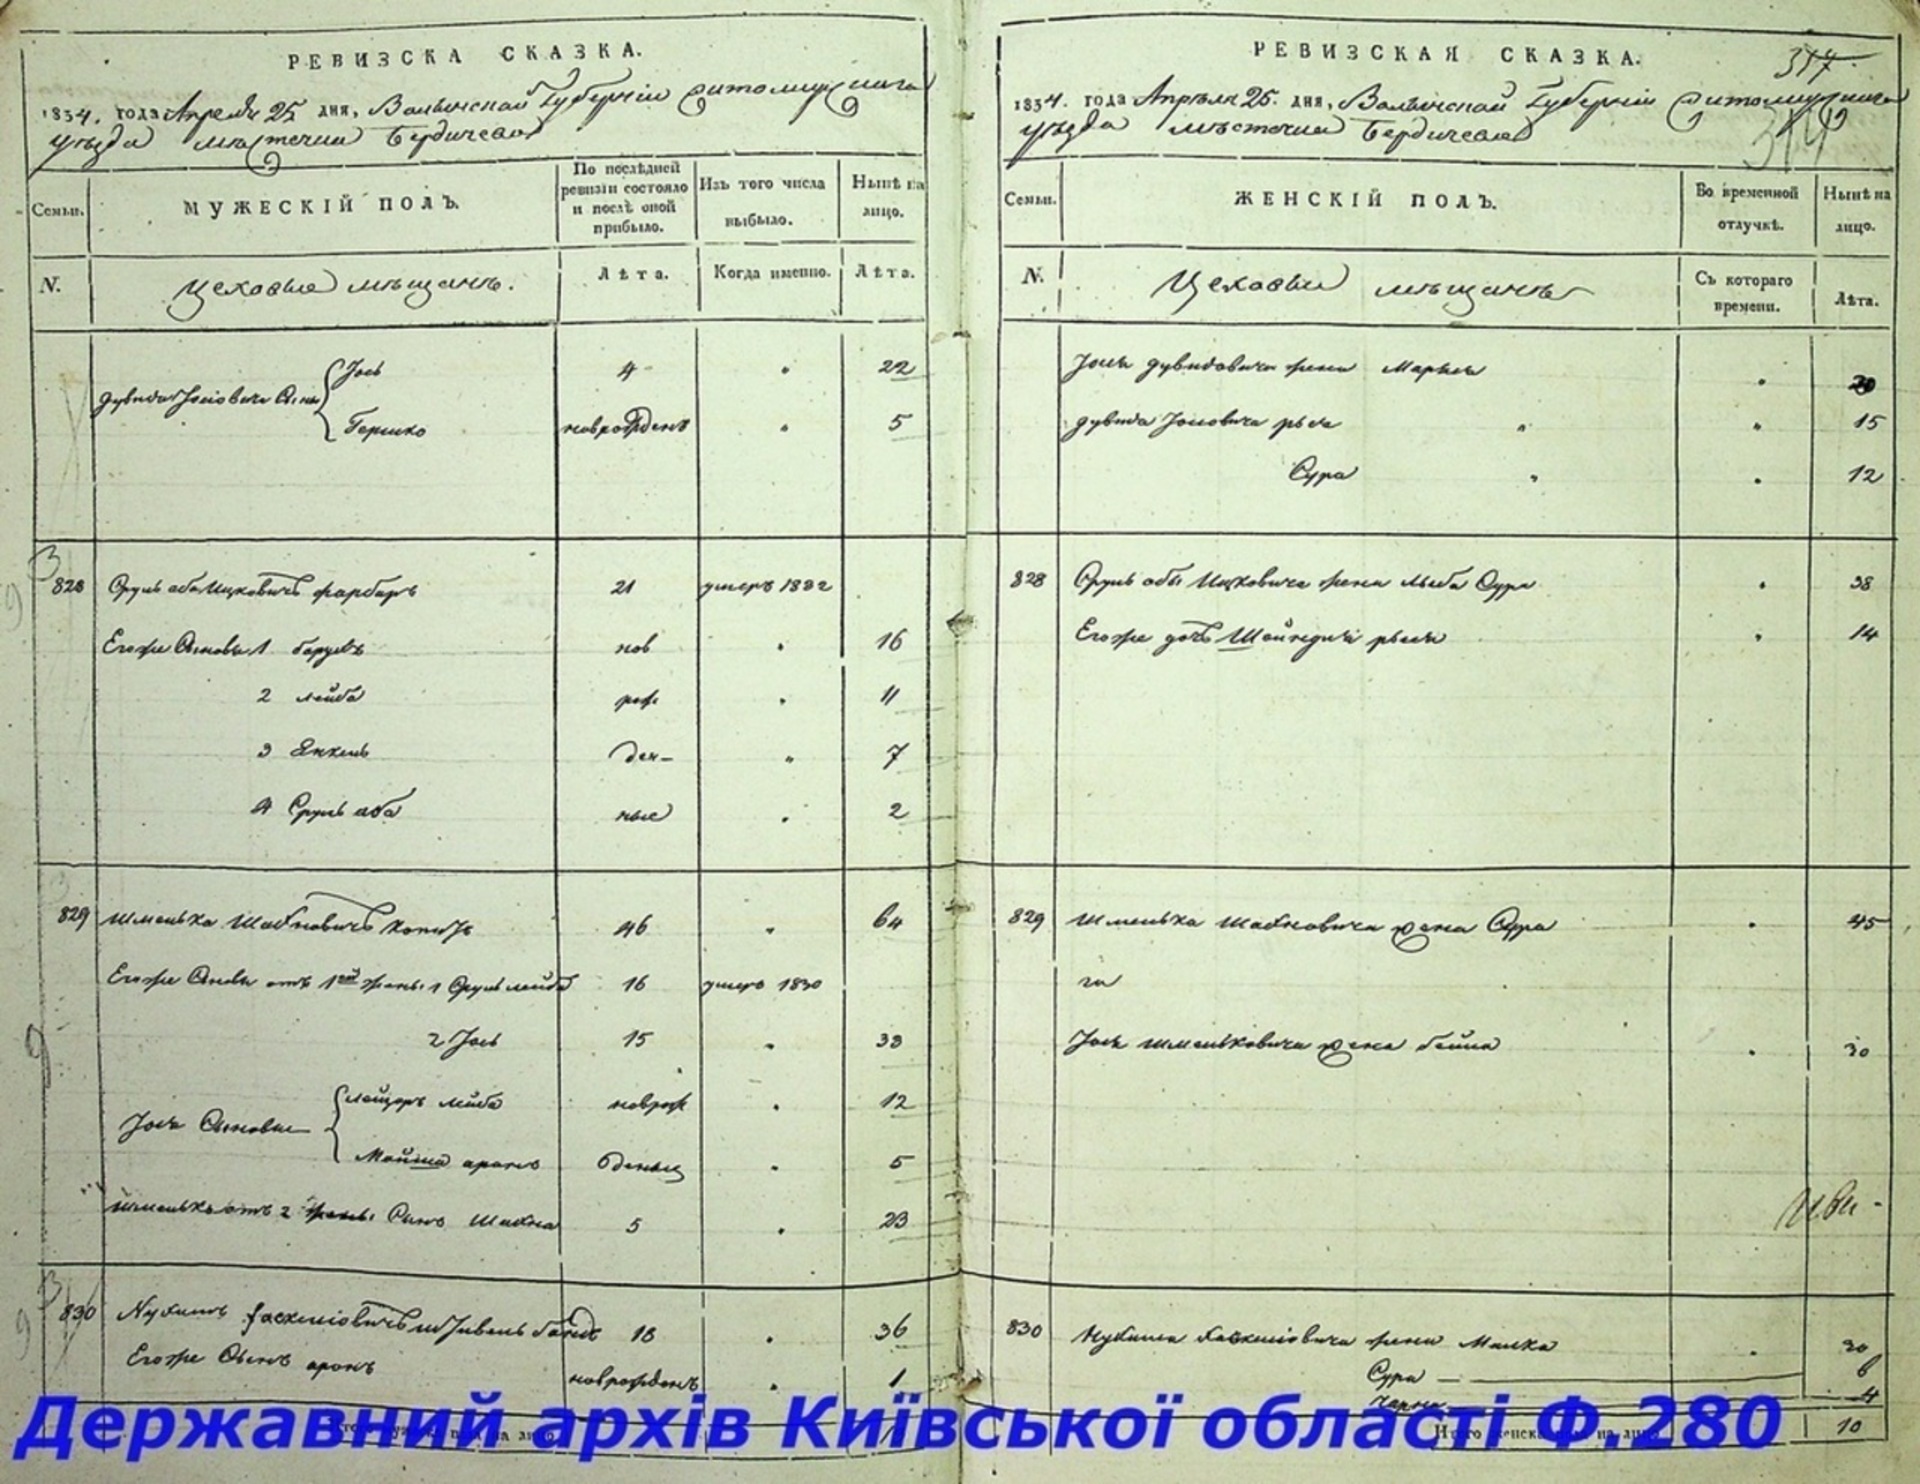 РЕВИЗСКА СКАЗКА.
1834. года Апреля 25 дня, Волынской Губерніи Житомирскаго
уезда местечка Бердичева
Семьи.
МУЖЕСКІЙ ПОЛЪ.
По послѣдней ревизіи состояло и послѣ оной прибыло.
Изъ того числа выбыло.
Нынѣ на лицо.
N.
Цеховые мещане.
Лѣта.
Когда именно.
Лѣта.
Дувида Іосіовича Сыны
Іось 4 " 22
Гершко новрожденъ " 5
828 Сруль аба Ицковичъ фарбаръ 21 умеръ 1832
Егоже Сыновья 1 борухъ нов " 16
2 лейба рож " 11
3 Янкель ден- " 7
4 Сруль аба ные " 2
829 Шмелька Шахновичъ 46 " 64
Егоже Сыновья отъ 1ой жены 1 Сруль лейба 16 умеръ 1830
2 Іось 15 " 33
Іося Сыновья
лейзоръ лейба новрож " 12
Мойша аронъ денныя " 5
Шмелька отъ 2 жены Сынъ Шахна 5 " 23
830 Нухимъ 18 " 36
Егоже Сынъ аронъ новрожденъ " 1
РЕВИЗСКАЯ СКАЗКА.
317
1834. года Апреля 25. дня, Волынской Губерніи Житомирскаго
уезда местечка Бердичева
314
Семьи.
ЖЕНСКІЙ ПОЛЪ.
Во временной отлучкѣ.
Нынѣ на лицо.
N.
Цеховые мещане
Съ котораго времени.
Лѣта.
Іося Дувидовича жена Марьям " 20
Дувида Іосіовича рыся " " 15
Сура " " 12
828 Сруль абы Ицковича жена лыба Сура " 38
Егоже дочь рыся " 14
829 Шмелька Шахновича жена Сура " 45
Іося Шмельковича жена бейла " 30
830 Нухима жена Малка " 30
Сура 6
Чарна 4
Итого женска пола на лицо 10
Державний архів Київської області Ф.280